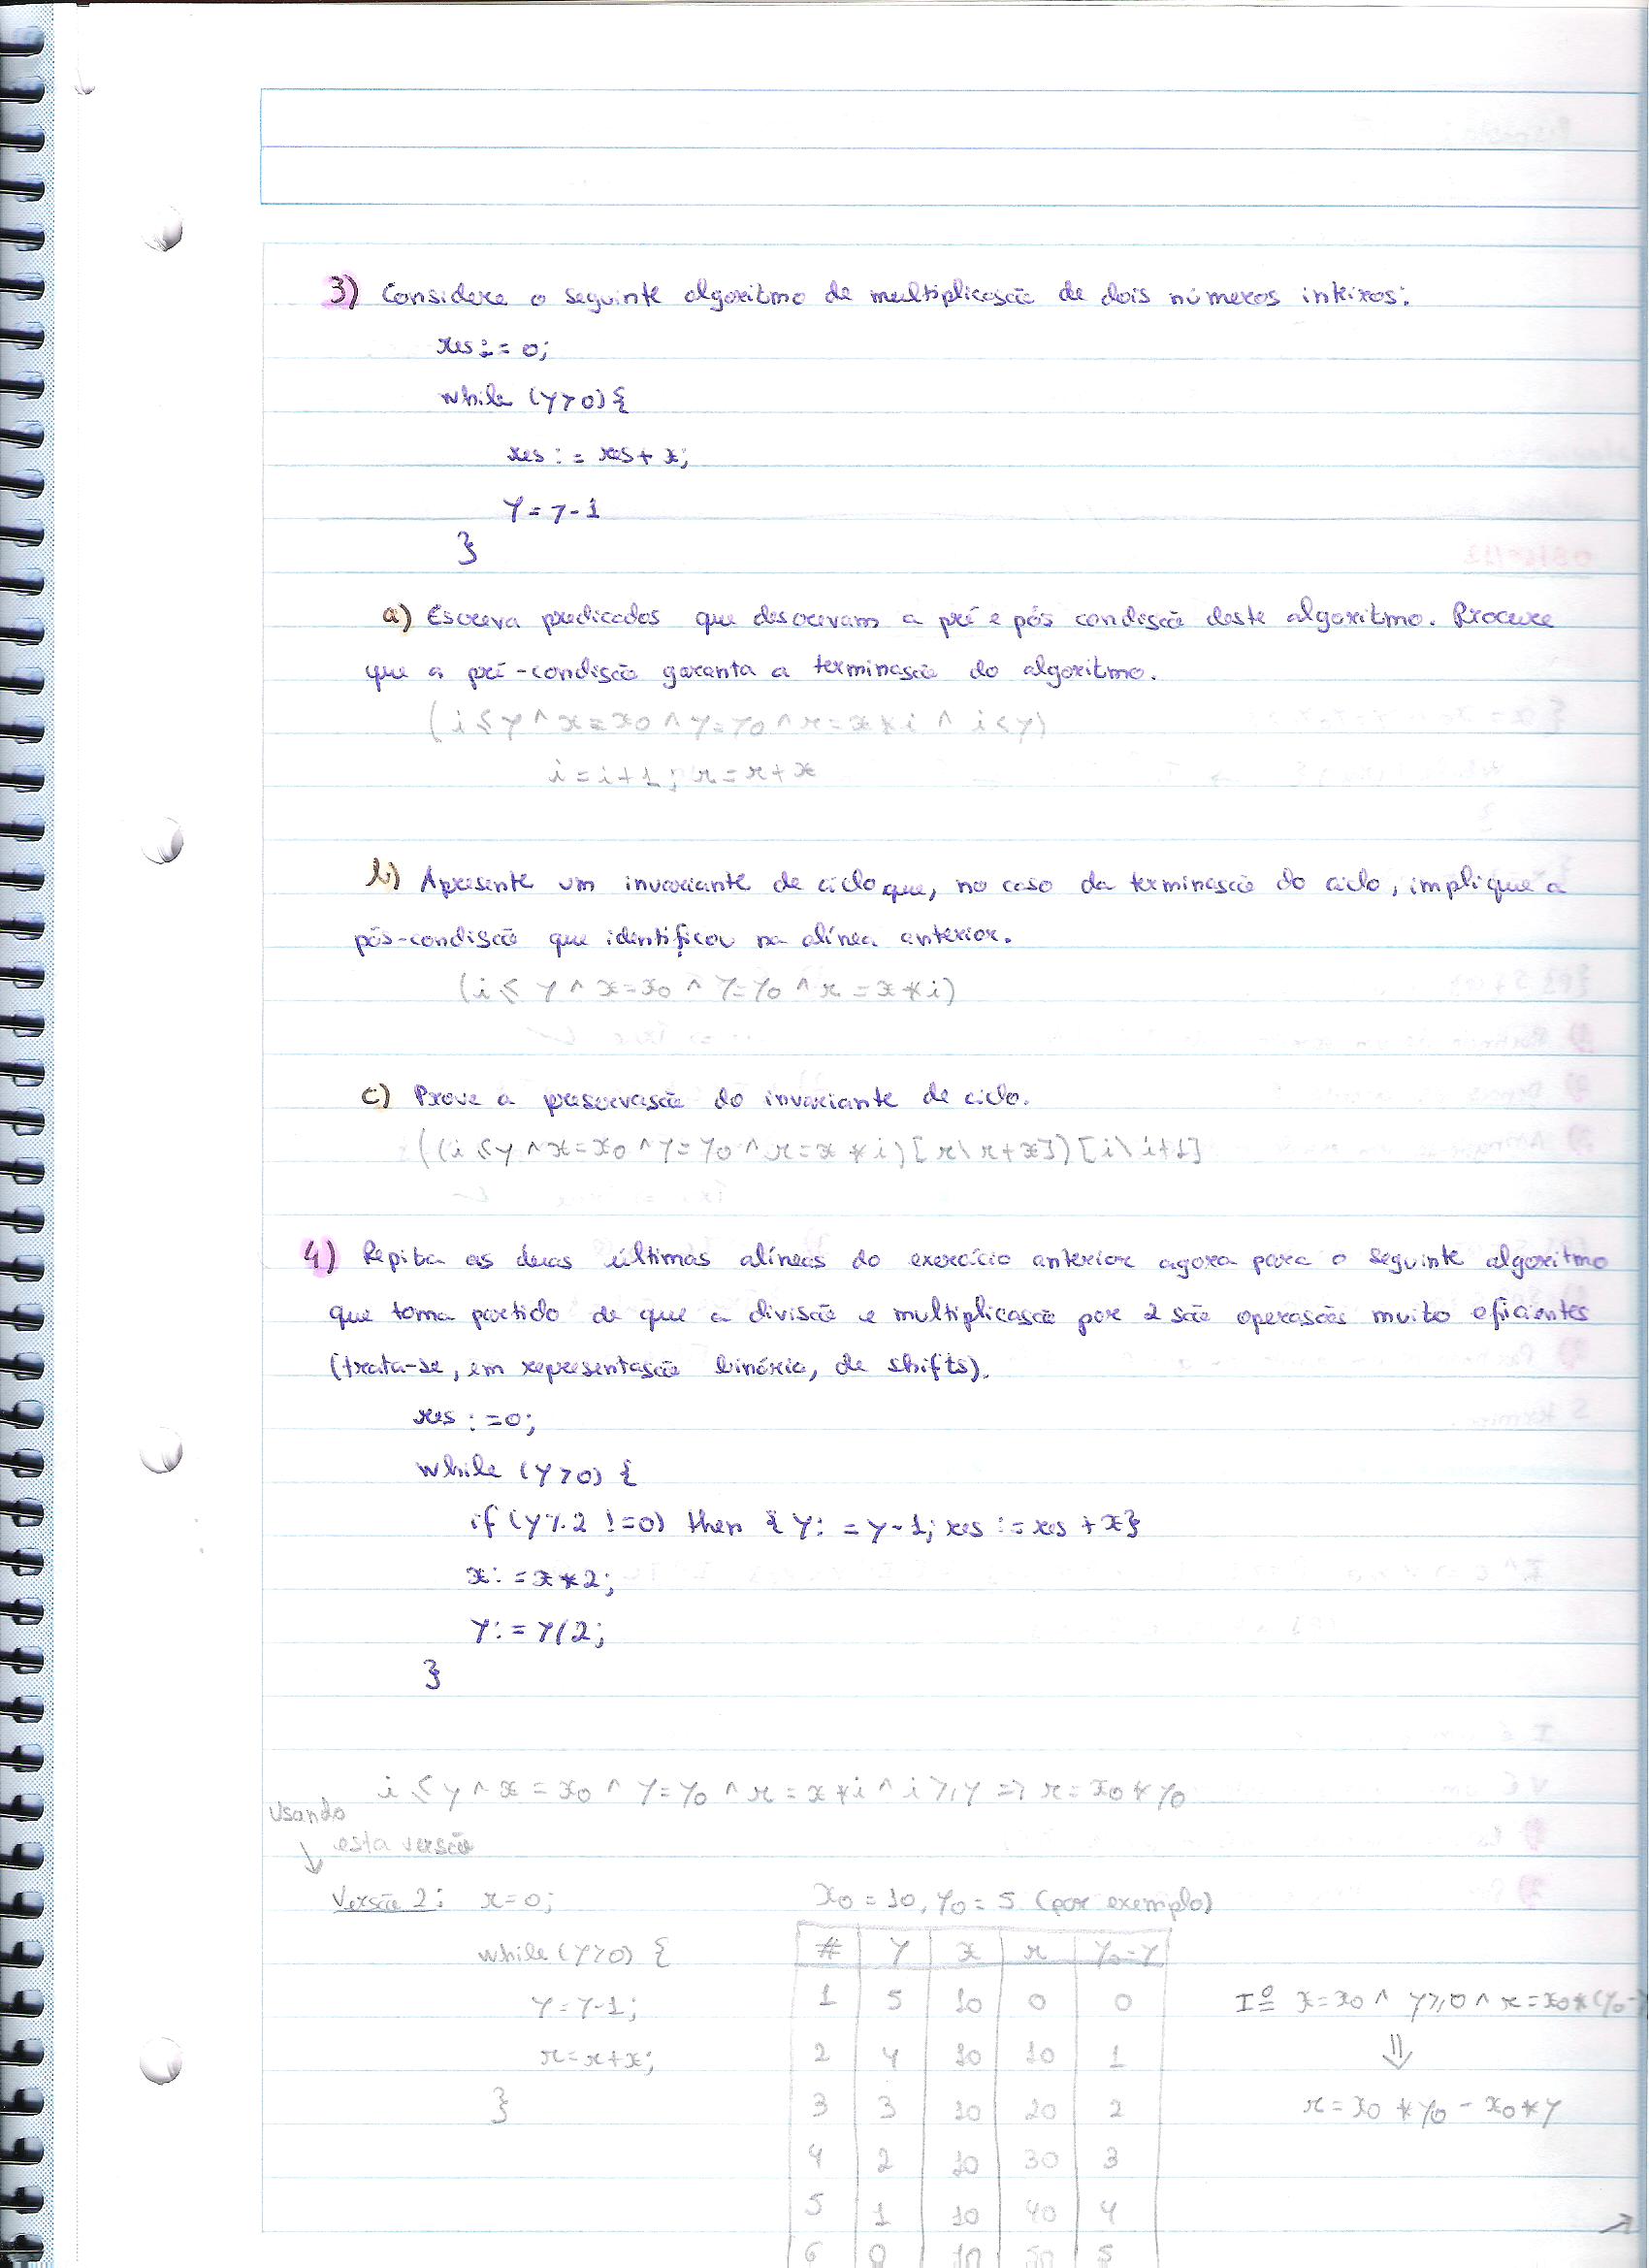 3) Considere o seguinte algoritmo de multiplicação de dois números inteiros:
res := 0;
while (y>0){
res := res + x;
y = y-1
}
a) Escreva predicados que descrevam a pré e pós condição deste algoritmo. Procure
que a pré-condição garanta a terminação do algoritmo.
(i ≤ y ∧ x = x0 ∧ y = y0 ∧ r = x * i ∧ i < y)
i = i+1; r = r + x
b) Apresente um invariante de ciclo que, no caso da terminação do ciclo, implique a
pós-condição que identificou na alínea anterior.
(i ≤ y ∧ x = x0 ∧ y = y0 ∧ r = x * i)
c) Prove a preservação do invariante de ciclo.
((i ≤ y ∧ x = x0 ∧ y = y0 ∧ r = x * i)[r \ r+x])[i \ i+1]
4) Repita as duas últimas alíneas do exercício anterior agora para o seguinte algoritmo
que toma partido de que a divisão e multiplicação por 2 são operações muito eficientes
(trata-se, em representação binária, de shifts).
res := 0;
while (y>0) {
if (y%2 != 0) then {y := y-1; res := res + x}
x := x*2;
y := y/2;
}
i ≤ y ∧ x = x0 ∧ y = y0 ∧ r = x * i ∧ i ≥ y => r = x0 * y0
Usando
↓ esta versão
Versão 2: r=0; x0 = 10, y0 = 5 (por exemplo)
while (y>0) { # y x r y0-y
y = y-1; 1 5 10 0 0 I º= x = x0 ∧ y ≥ 0 ∧ r = x0 * (y0-
r = r+x; 2 4 10 10 1 ⇓
} 3 3 10 20 2 r = x0 * y0 - x0 * y
4 2 10 30 3
5 1 10 40 4
6 0 10 50 5